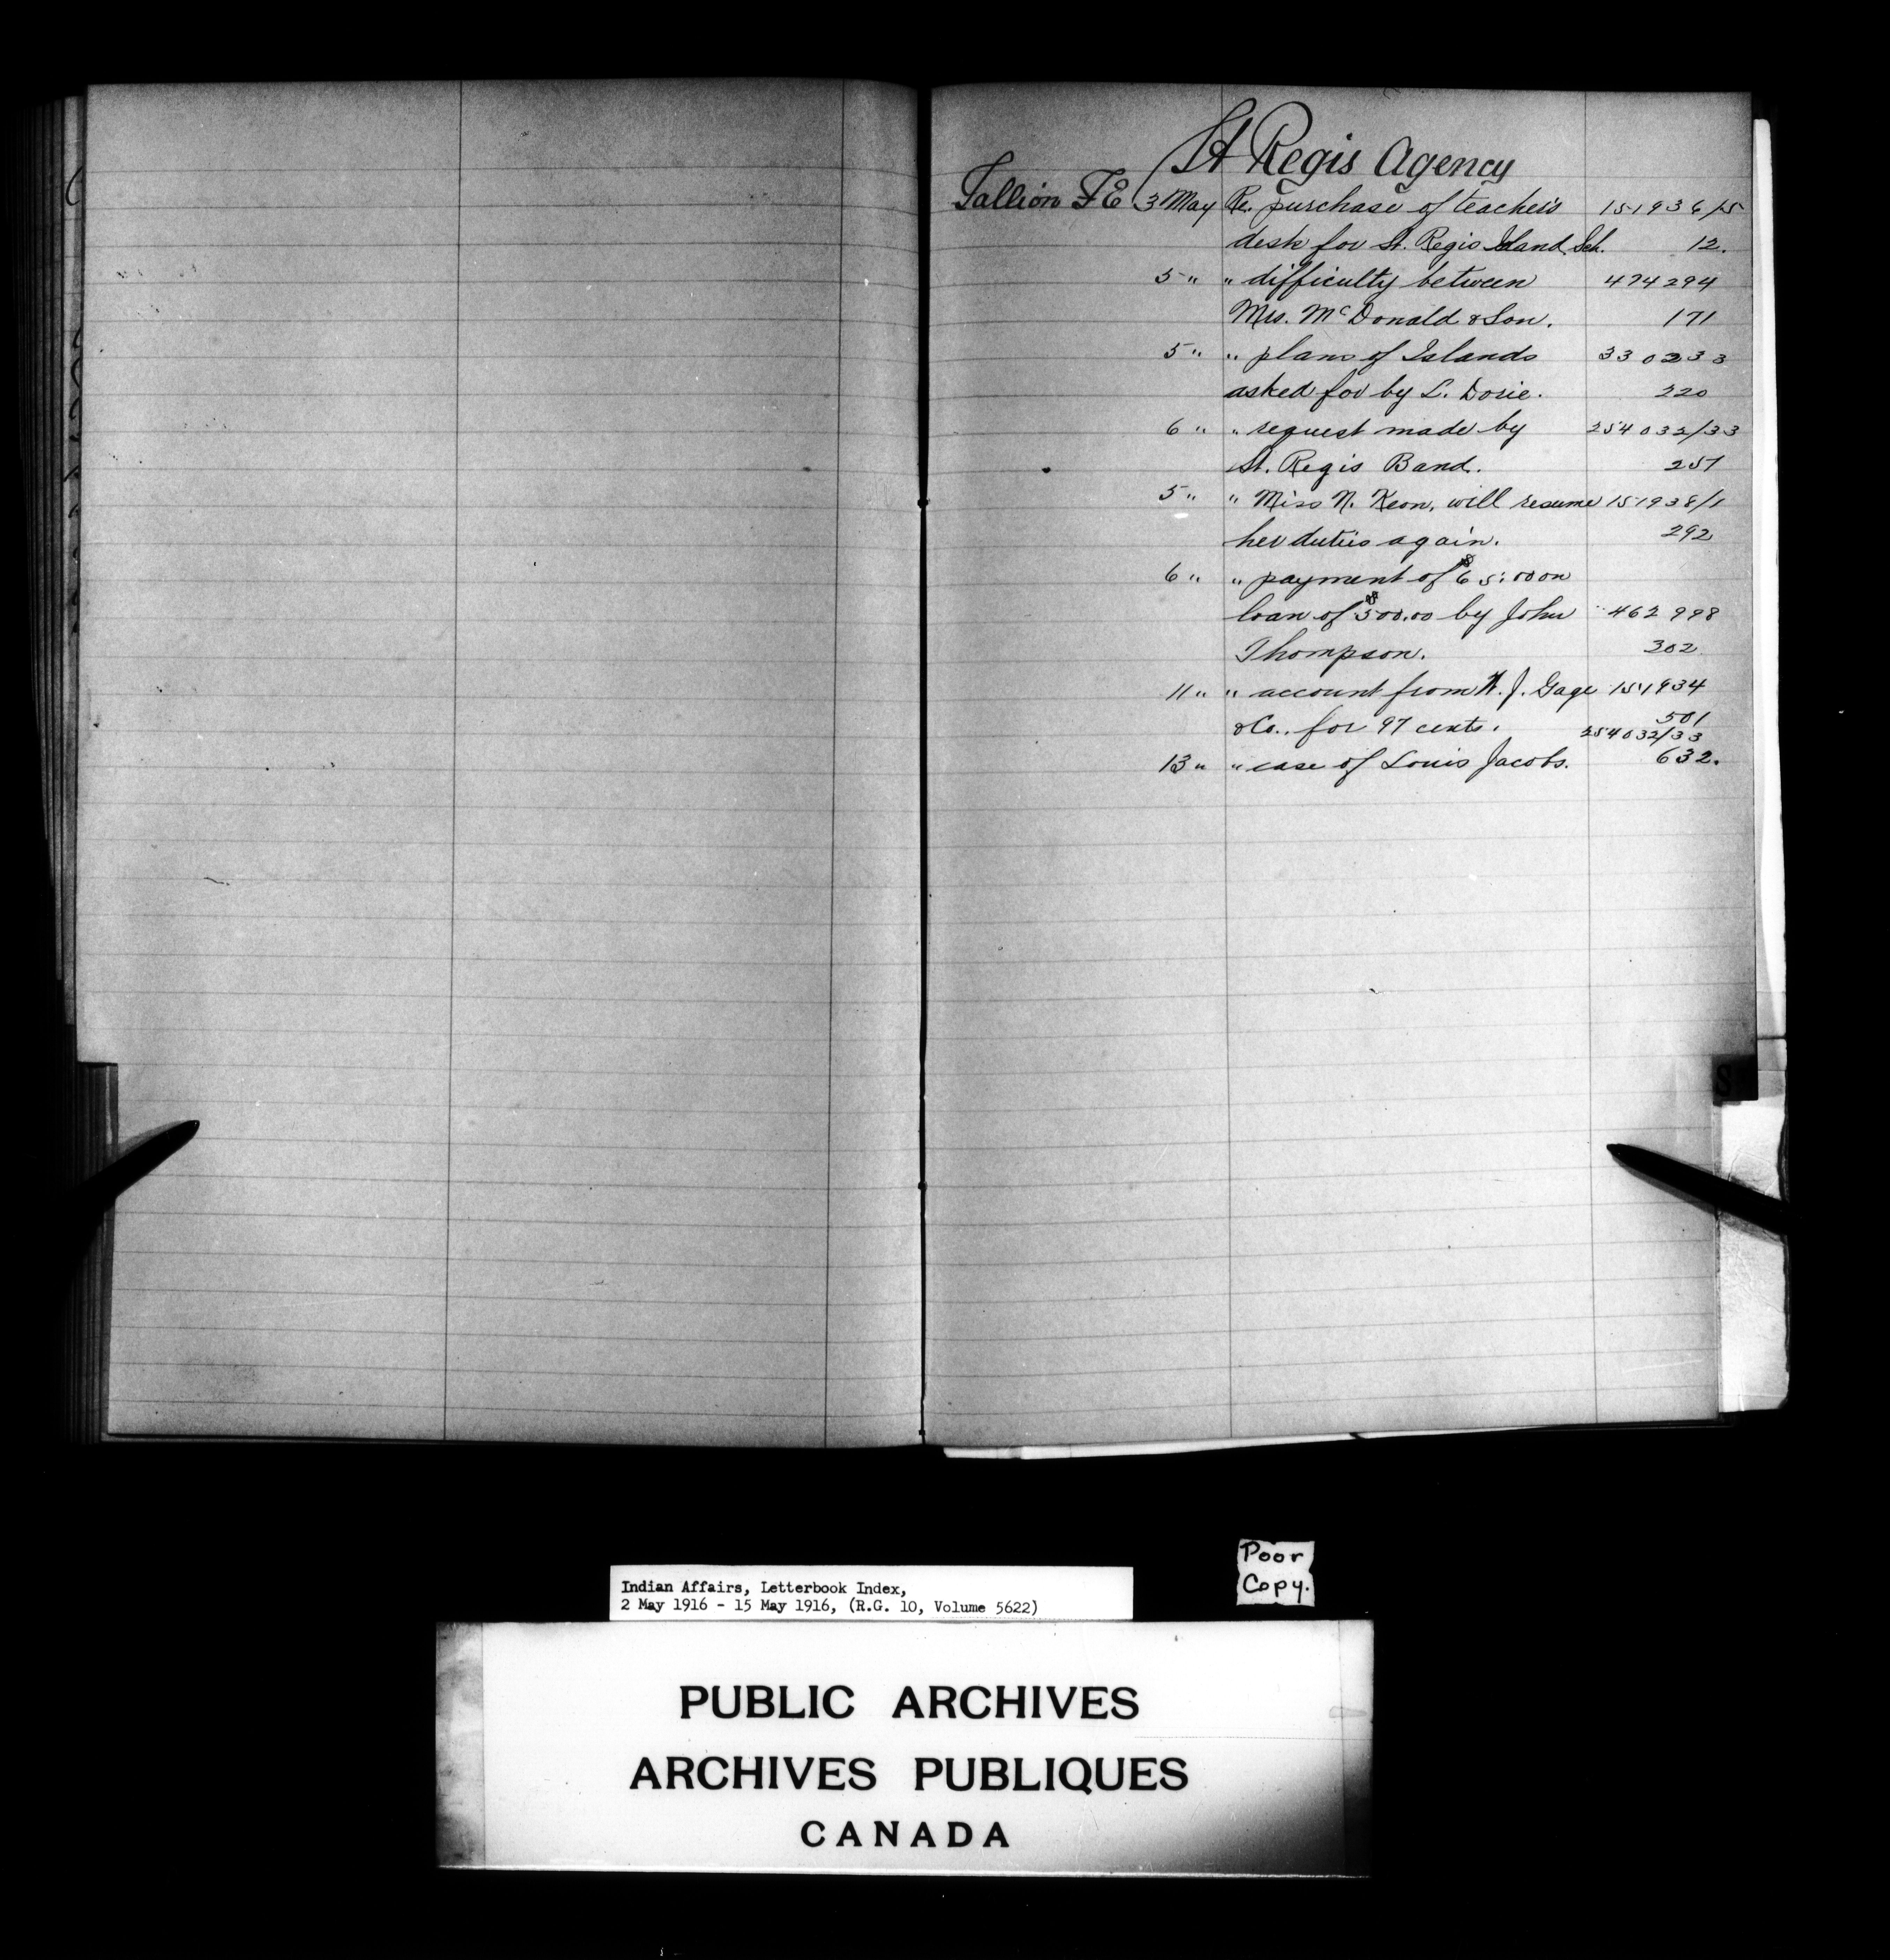 St Regis Agency
Tallion F E 3 May Re. purchase of teacher's 151936/15
desk for St. Regis Island Sch. 12.
5 " " difficulty between 474294
Mrs. McDonald & Son. 171
5 " " plans of Islands 330233
asked for by L. Dorie. 220
6 " " request made by 254032/33
St. Regis Band. 251
5 " " Miss N. Keon, will resume 151938/1
her duties again. 292
6 " " payment of $65.00 on
loan of $500.00 by John 462998
Thompson. 302
11 " " account from W. J. Gage 151934
& Co., for 97 cents. 501
254032/33
13 " " case of Louis Jacobs. 632.
S
Poor
Copy.
Indian Affairs, Letterbook Index,
2 May 1916 - 15 May 1916, (R.G. 10, Volume 5622)
PUBLIC ARCHIVES
ARCHIVES PUBLIQUES
CANADA